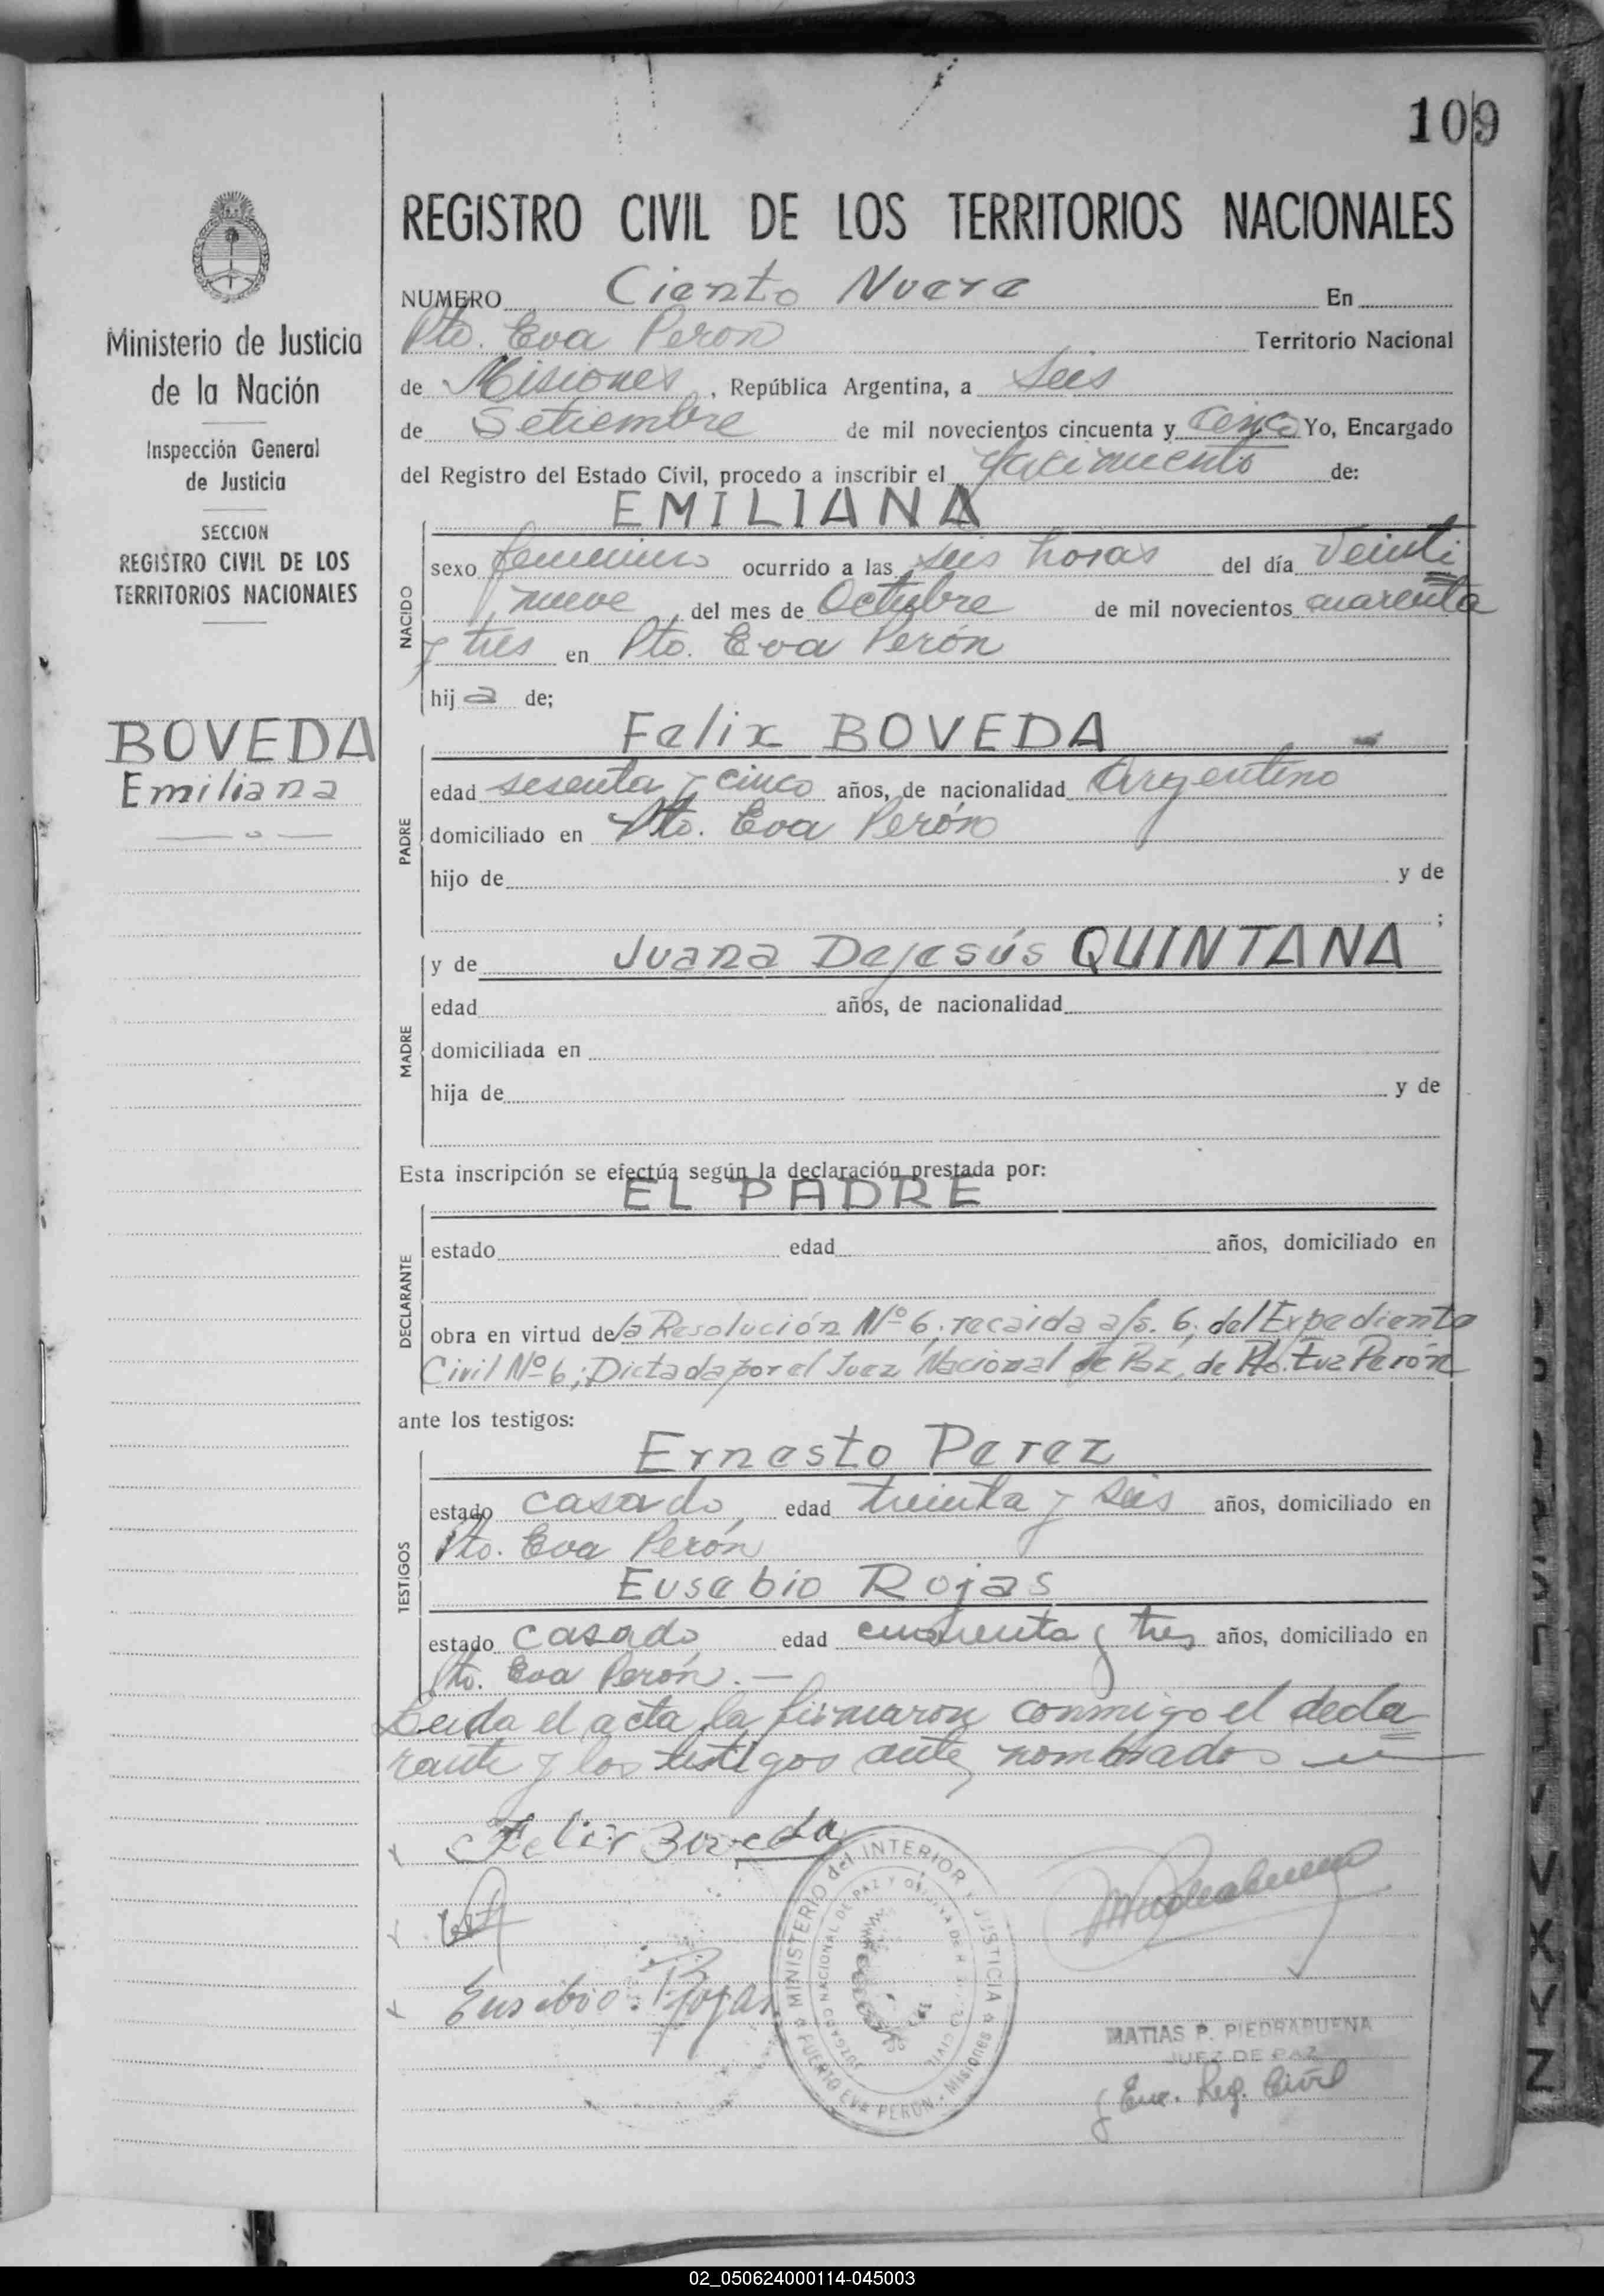 109
REGISTRO CIVIL DE LOS TERRITORIOS NACIONALES
Ministerio de Justicia
de la Nación
Inspección General
de Justicia
SECCION
REGISTRO CIVIL DE LOS
TERRITORIOS NACIONALES
BOVEDA
Emiliana
NUMERO Ciento Nueve En
Pto. Eva Peron Territorio Nacional
de Misiones, República Argentina, a Seis
de Setiembre de mil novecientos cincuenta y Cinco Yo, Encargado
del Registro del Estado Civil, procedo a inscribir el Nacimiento de:
NACIDO
EMILIANA
sexo femenino ocurrido a las seis horas del día Veinti
nueve del mes de Octubre de mil novecientos cuarenta
y tres en Pto. Eva Perón
hija de;
PADRE
Felix BOVEDA
edad sesenta y cinco años, de nacionalidad Argentino
domiciliado en Pto. Eva Perón
hijo de y de
;
MADRE
y de Juana DeJesús QUINTANA
edad años, de nacionalidad
domiciliada en
hija de y de
Esta inscripción se efectúa según la declaración prestada por:
DECLARANTE
EL PADRE
estado edad años, domiciliado en
obra en virtud de la Resolución Nº 6, recaida a fs. 6, del Expediente
Civil Nº 6; Dictada por el Juez Nacional de Paz, de Pto. Eva Perón
ante los testigos:
TESTIGOS
Ernesto Perez
estado casado, edad treinta y seis años, domiciliado en
Pto. Eva Perón
Eusebio Rojas
estado casado, edad cuarenta y tres años, domiciliado en
Pto. Eva Perón. —
Leida el acta la firmaron conmigo el decla
rante y los testigos ante nombrados
Felix Boveda
Eusebio Rojas
MINISTERIO del INTERIOR Y JUSTICIA
JUZGADO NACIONAL DE PAZ Y
PUERTO EVA PERÓN - Misiones
MATIAS P. PIEDRABUENA
JUEZ DE PAZ
y Enc. Reg. Civil
V
X
Y
Z
02_050624000114-045003